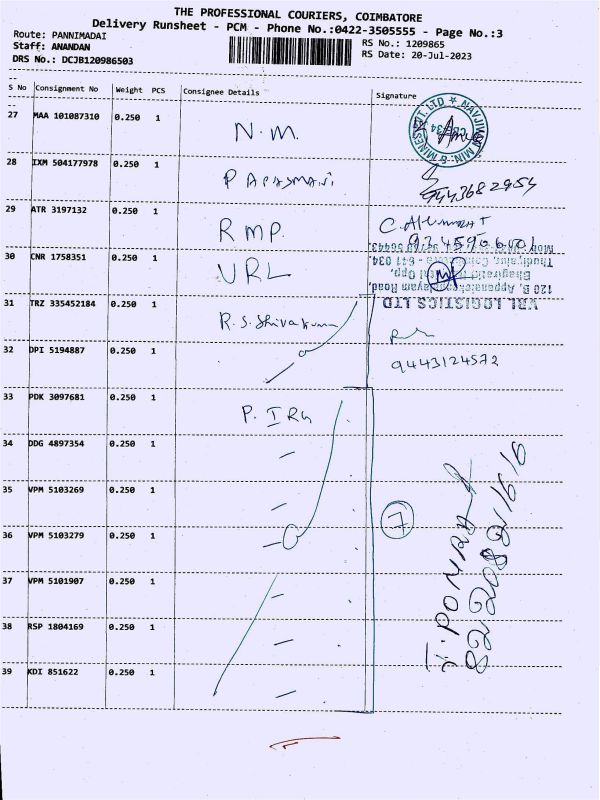 THE PROFESSIONAL COURIERS, COIMBATORE
Delivery Runsheet - PCM - Phone No.:0422-3505555 - Page No.:3
Route: PANNIMADAI
RS No.: 1209865
Staff: ANANDAN
RS Date: 20-Jul-2023
DRS No.: DCJB120986503
S No Consignment No Weight PCS Consignee Details Signature
27 MAA 101087310 0.250 1 N.M.
28 IXM 504177978 0.250 1
9443682954
29 ATR 3197132 0.250 1 RMP.
30 CNR 1758351 0.250 1 VRL
VRL LOGISTICS LTD
120 B, Road,
Opp,
641 034.
31 TRZ 335452184 0.250 1 R.S.Shivakumar
32 DPI 5194887 0.250 1
9443124572
33 PDK 3097681 0.250 1 P.
34 DDG 4897354 0.250 1
35 VPM 5103269 0.250 1
7
36 VPM 5103279 0.250 1
37 VPM 5101907 0.250 1
38 RSP 1804169 0.250 1
39 KDI 851622 0.250 1
8220821616